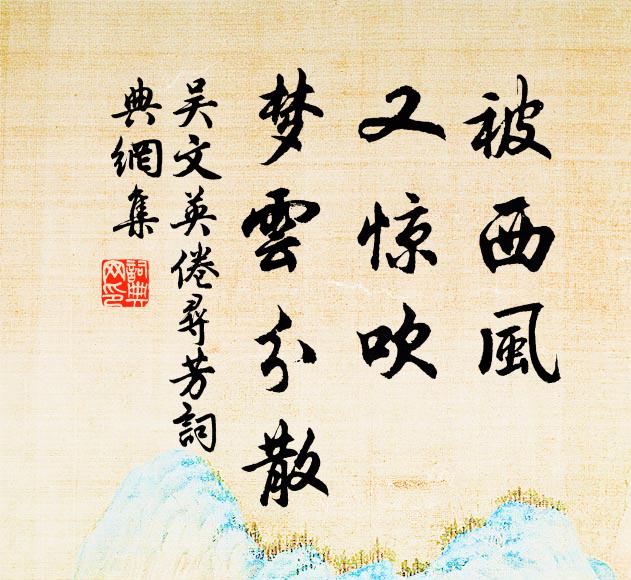 被西風
又惊吹
梦雲分散
吴文英倦尋芳詞
典網集
詞典
网印